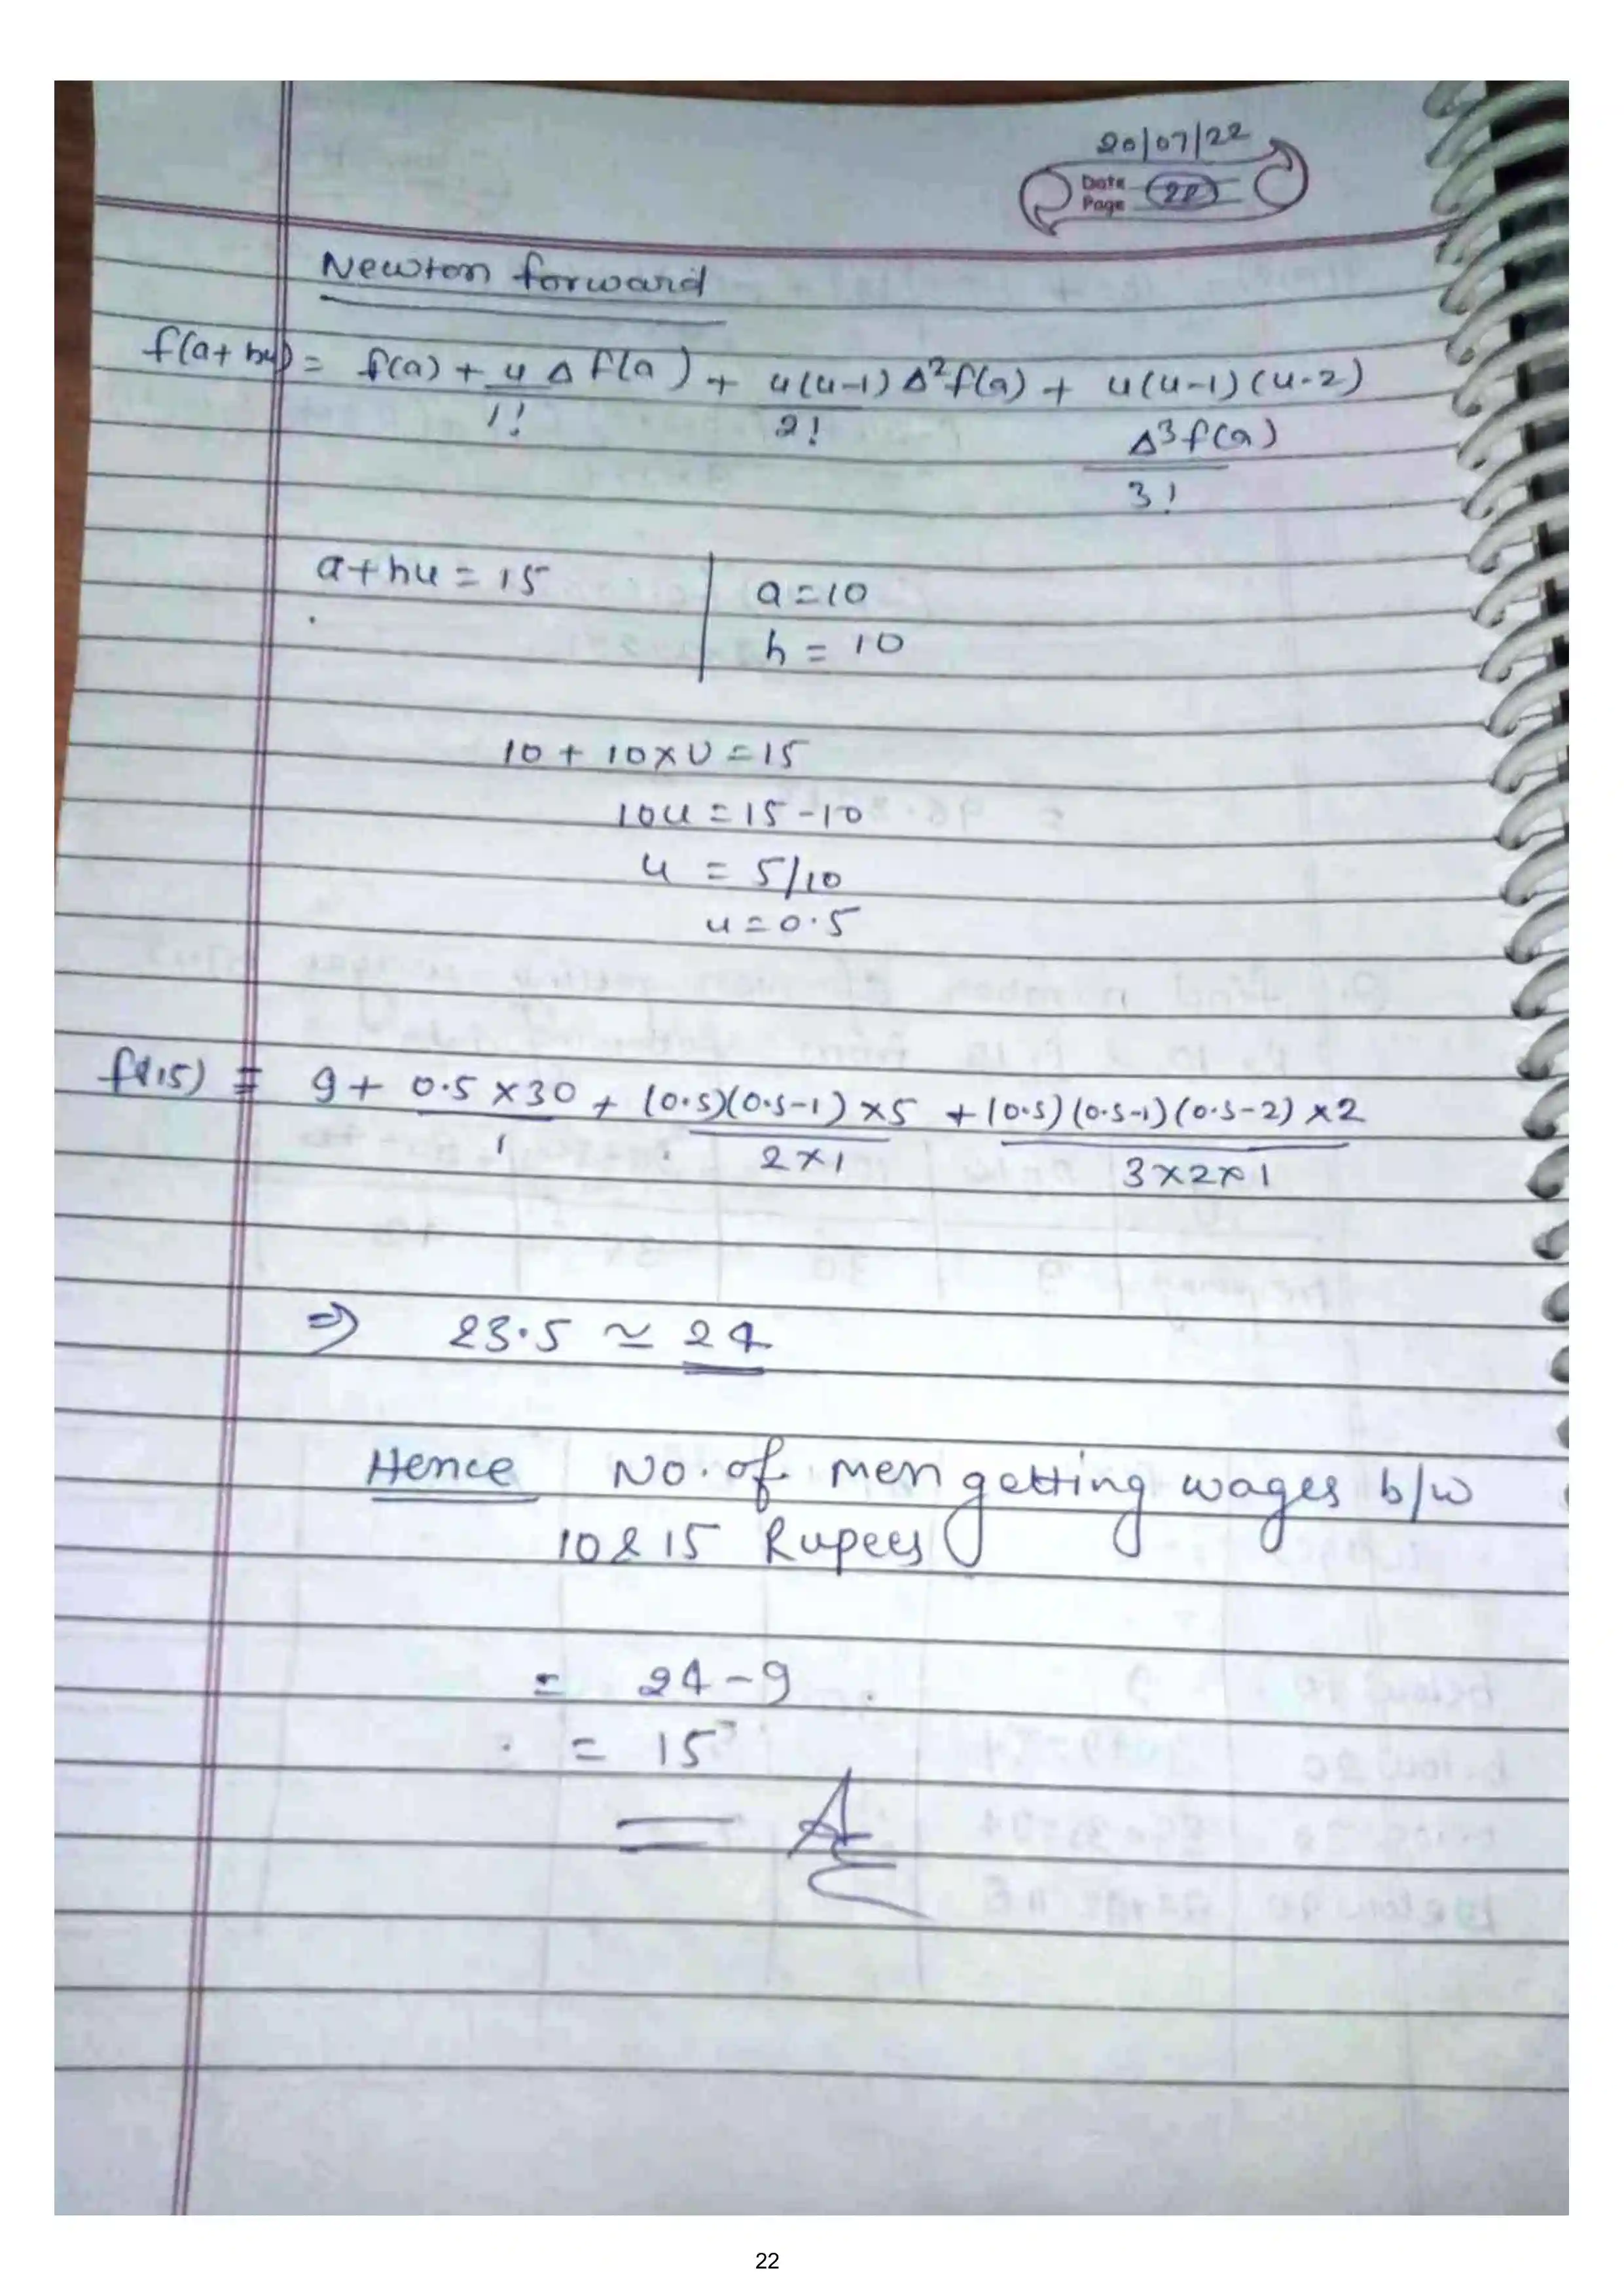 20/07/22
Date
Page 22
Newton forward
f(a+hu) = f(a) + u Δ f(a) + u(u-1) Δ²f(a) + u(u-1)(u-2)
1! 2! Δ³f(a)
3!
a+hu = 15 a=10
h = 10
10 + 10×U = 15
10u = 15-10
u = 5/10
u = 0.5
f(15) = 9 + 0.5×30 + (0.5)(0.5-1)×5 + (0.5)(0.5-1)(0.5-2)×2
1 2×1 3×2×1
⇒ 23.5 ≃ 24
Hence No. of men getting wages b/w
10 & 15 Rupees
= 24-9
= 15
22